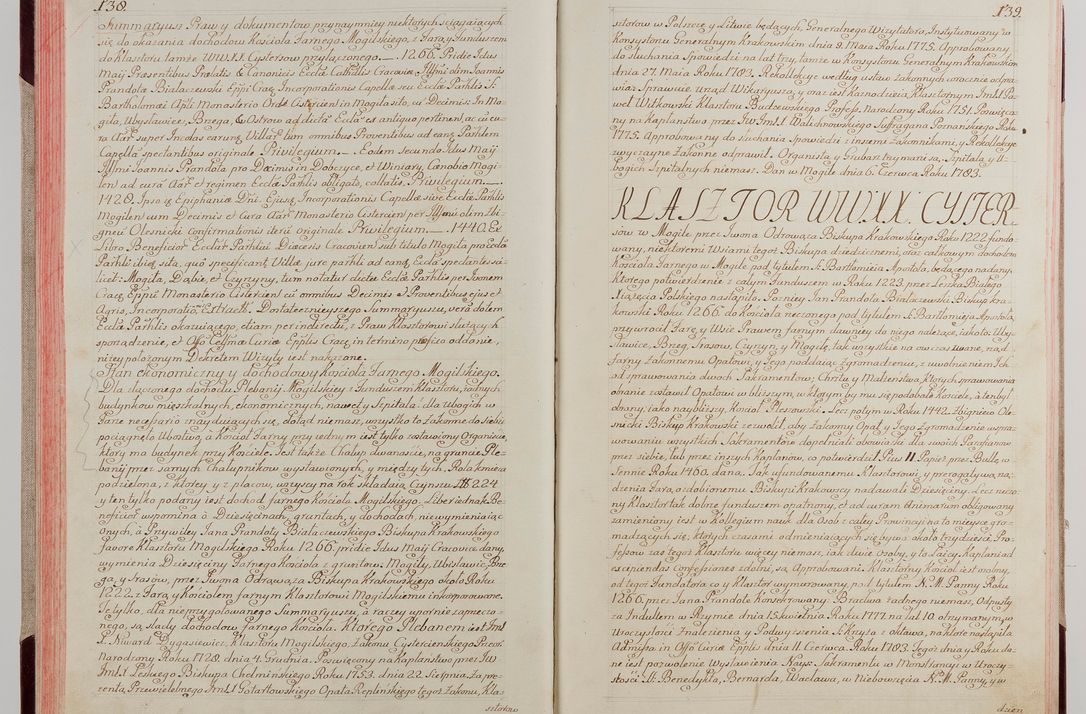 138.
Summaryusz Praw y dokumentow przynaymniey niektorych sciągaiących
się do okazania dochodow Kościoła Farnego Mogilskiego, z Farą y Funduszem
do Klasztoru tamże WW.XX. Cystersow przyłączonego. 1266. Pridie Idus
Maij Præsentibus Prælatis & Canonicis Ecclæ Cathlis Cracoviæ Illmi olim Joannis
Prandota Białaczewski Eppi Crac: Incorporationis Capellæ seu Ecclæ Parhlis S:
Bartholomæi Apli Monasterio Ordi: Cistercien: in Mogila sito, w Decimis: In Mo-
giła, Ubysławice, Brega, & Ostrow ad dictā Ecclā ex antiquo pertinen: ac cū cu-
ra Aār: super Incolas earunq. Villār: tum omnibus Proventibus ad eanq. Parhlem
Capellā spectantibus originale Privilegium. Eodem secundo Idus Maij
Illmi Joannis Prandota pro Dæcimis in Dobczyce, et Winiary, Cænobio Mogi-
len: ad curā Aār: et regimen Ecclæ Parhlis obligato, collatis. Privilegium.
1428. Ipso q. Epiphaniæ Dni. Ejusq. Incorporationis Capellæ sive Ecclæ Parhlis
Mogilen: cum Decimis et Cura Aār: Monasterio Cistercien: per Illmū olim Zbi-
gneū Olesnicki confirmationis iterū originale Privilegium. 1440. Ex
Libro Beneficior: Ecclār: Parhliū Diæcesis Cracovien: sub titulo Mogiła pro Ecclā
Parhli ibiq. sita, quo specificanq. Villæ jure parhli ad eanq. Ecclā spectantes sci-
licet: Mogiła, Dąbie, et Czyżyny, tum notatur dictæ Ecclæ Parhlis per Jwonem
Cracq. Eppū Monasterio Cistercien: cū omnibus Decimis & Proventibus ejus et
Agris, Incorporatio, Extractū. Dostatecznieyszego Summaryuszu, verā dotem
Ecclæ Parhlis okazuiącego, etiam per indirectū, z Praw Klasztorowi służących
sporządzenie, et Offo Celsmæ Curiæ Epplis Cracq. in termino præfixo oddanie,
niżey położonym Dekretem Wizyty iest nakazane.
Stan ekonomiczny y dochodowy Kościoła Farnego Mogilskiego.
Dla złączonego dochodu Plebanij Mogilskiey z Funduszem Klasztoru, żadnych
budynkow mieszkalnych, ekonomicznych, nawet y Szpitala dla Ubogich w
Farze necessariò znayduiących się, dotąd niemasz, wszystko to Zakonne do siebie
pociągnęło Ubostwo, a Kościoł Farny przy iednym iest tylko zostawiony Organiście,
ktory ma budynek przy Kościele. Jest także Chałup dwanaście, na gruncie Ple-
banij przez samych Chałupnikow wystawionych, y między tych, Rola kmieca
podzielona, z ktorey y z placow, wszyscy na rok składaią Czynszu 224
y ten tylko podany iest dochod farnego Kościoła Mogilskiego. Liber iednak Be-
neficior: wspomina o Dziesięcinach, gruntach, y dochodach, niewymieniaiąc
onych, a Przywiley Jana Prandoty Białaczewskiego Biskupa Krakowskiego
favore Klasztoru Mogilskiego Roku 1266. pridie Idus Maij Cracoviæ dany,
wymienia Dziesięciny Farnego Kościoła z gruntow: Mogiły, Ubysławic, Bre-
ga, y Srasow, przez Jwona Odrowąża Biskupa Krakowskiego około Roku
1222. z Farą, y Kościołem farnym Klasztorowi Mogilskiemu inkorporowane.
Te tylko, dla nieprzygotowanego Summaryuszu, a raczey upornie zapmecza-
nego, są slady dochodow Farnego Kościoła: Ktorego Plebanem iest Jmł
X. Niward Bugasiewicz, Klasztoru Mogilskiego, Zakonu Cisterciensskiego Przeor.
Narodzony Roku 1728. dnia 4. Grudnia. Poswięcony na Kapłanstwo przez JW
Jmł.X. Leskiego Biskupa Chełminskiego Roku 1753. dnia 22. Sierpnia. Za pre-
zentą Przewielebnego Jmł.X Gotartowskiego Opata Koplinskiego tegoż Zakonu, Kla-
sztorow
139.
sztorow w Polszcze y Litwie będących, Generalnego Wizytatora, Instytuowany w
Konsystorzu Generalnym Krakowskim dnia 9. Maia Roku 1775. Approbowany
do słuchania Spowiedzi na lat trzy, tamże w Konsystorzu Generalnym Krakowskim
dnia 27. Maia Roku 1783. Rekollekcye według ustaw Zakonnych corocznie odpra-
wia: Sprawuie Urząd Wikaryusza, y oraz iest Kaznodzieią Klasztornym Jmł.X Pa-
weł Witkowski Klasztoru Budzewskiego Profess. Narodzony Roku 1751. Poswięco-
ny na Kapłanstwo przez JW. Jmł.X Walichnowskiego Suffragana Poznanskiego Roku
1775. Approbowany do słuchania Spowiedzi z innemi Zakonnikami, y Rekollekcye
zwyczayne Zakonne odprawił. Organista, y Grabarz trzymani są, Szpitala, y U-
bogich Szpitalnych niemasz. Dan w Mogile dnia 6. Czerwca Roku 1783.
KLASZTOR WW.XX. CYSTER-
sow w Mogile przez Jwona Odrowąża Biskupa Krakowskiego Roku 1222. fundo-
wany, niektoremi Wsiami tegoż Biskupa dziedzicznemi, oraz całkowym dochodem
Kościoła Farnego w Mogile pod tytułem S: Bartłomieia Apostoła, będącego nadany,
Ktorego potwierdzenie z całym Funduszem w Roku 1223. przez Leszka Białego
Xiążęcia Polskiego nastąpiło. Pozniey Jan Prandota Białaczewski Biskup Kra-
kowski Roku 1266. do Kościoła rzeczonego pod tytułem S: Bartłomieia Apostoła,
przywrocił Farę, y Wsie Prawem farnym dawniey do niego należące, iako to: Uby-
sławice, Breg, Srasow, Czyżyn, y Mogiłę, tak wszystkie na owczas zwane, nad
farny Zakonnemu Opatowi, y Jego poddaiąc Zgromadzeniu, z uwolnieniem Ich
od sprawowania dwoch Sakramentow, Chrztu y Małżenstwa, Ktorych sprawowania
oboranie zostawił Opatowi w bliższym, w ktorym by mu się podobało Kościele, a ten był
obrany, iako naybliższy, Kościoł Pleszowski. Lecz potym w Roku 1442. Zbigniew Ole-
snicki Biskup Krakowski zezwolił, aby Zakonny Opat, y Jego Zgromadzenie w spra-
wowaniu wszystkich Sakramentow dopełniali obowiązki dla swoich Parafianow
przez siebie, lub przez inszych Kapłanow, co potwierdził Pius II Papież przez Bullę w
Sennie Roku 1460. daną. Tak ufundowanemu Klasztorowi, y prerogatywą na-
dzenia Farą, ozdobionemu Biskupi Krakowscy nadawali Dziesięciny. Lecz uczo-
ny Klasztor tak dobrze funduszem opatrzony, et ad curam Animarum obligowany
zamieniony iest w Kollegium nauk dla Osob z całey Prowincyi na to mieysce gro-
madzących się, ktorych czasami odmieniaiących się bywa około trzydziestu. Pro-
fessow zaś tegoż Klasztoru więcey niemasz, iak dwie osoby, y to Laicy. Kapłani ad
excipiendas Confessiones zdatni, są Approbowani. Klasztorny Kościoł iest osobny,
od tegoż Fundatora, co y Klasztor wymurowany, pod tytułem N.M. Panny Roku
1266. przez Jana Prandotę Konsekrowany. Bractwa żadnego niemasz, Odpusty
za Indultem w Rzymie dnia 15. Kwietnia Roku 1777. na lat 10. otrzymanym w
Uroczystości Znalezienia y Podwyższenia S. Krzyża z oktawą, na ktore nastąpiła
Admissa in Offo Curiæ Epplis dnia 11. Czerwca Roku 1783. Tegoż dnia y Roku da-
ne iest pozwolenie Wystawienia Nayś: Sakramentu w Monstrancyi w Uroczy-
stości: SS. Benedykta, Bernarda, Wacława, w Niebowzięcia N.M. Panny, y w
dzien